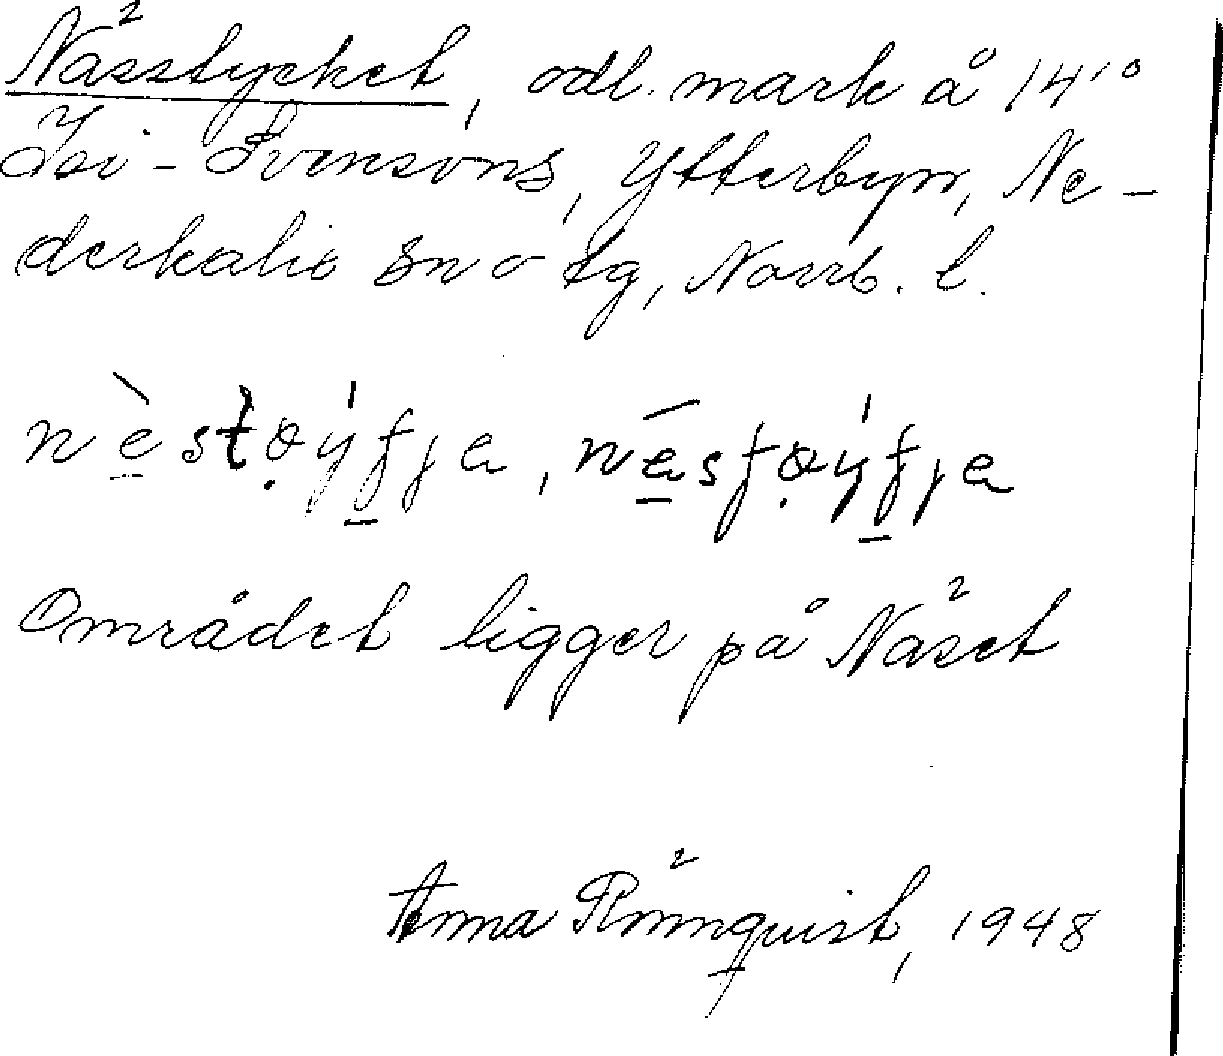 Nässtycket, odl. mark å 14¹⁰
Isi-Svensöns, Ytterbyn, Ne-
derkalix sn o tg, Norrb. l.
Området ligger på Näset
Anna Rönnquist, 1948